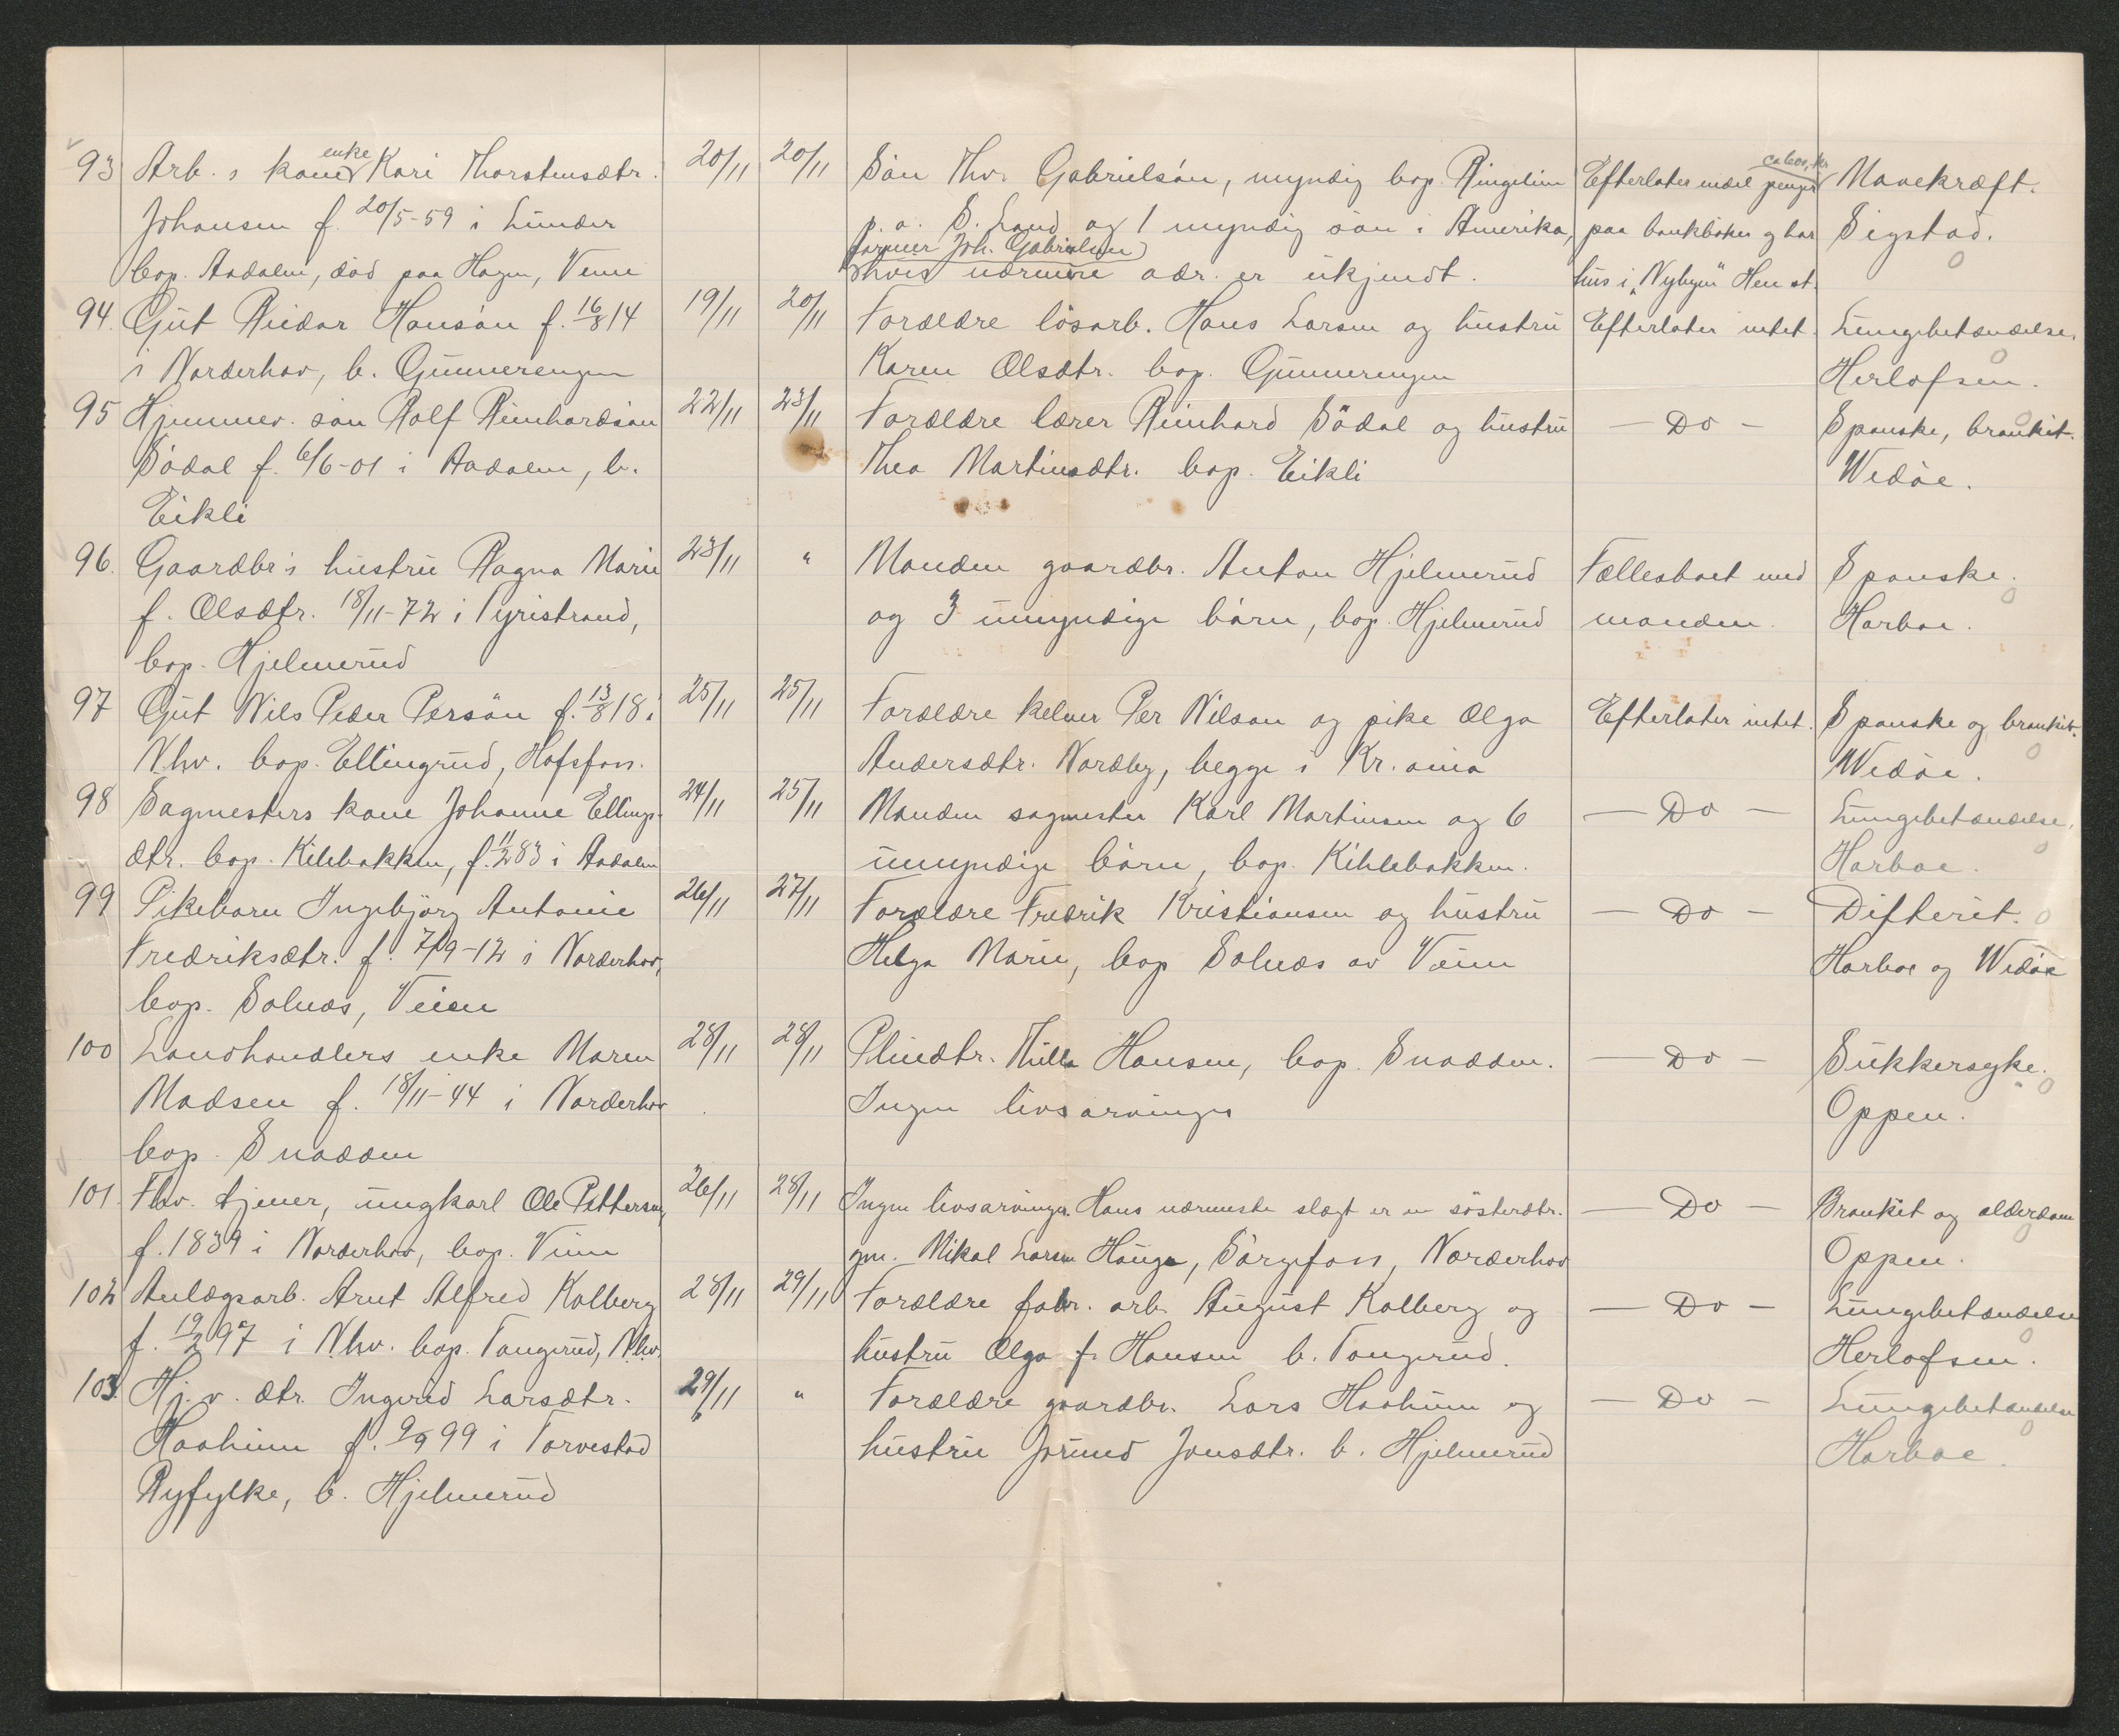 93 Arb. s kone enke Kari Thorstensdtr. 20/11 20/11 Søn Thv. Gabrielsøn, myndig bop. Ringelien Efterlater endel penger ca 600,- kr Mavekræft.
Johansen f. 20/5-59 i Lunder p.a. S. Land og 1 myndig søn i Amerika, paa bankbøker og har Sigstad.
farmer Joh. Gabrielsen
bop. Aadalen, død paa Hagen, Veme hvis nærmere adr. er ukjendt. hus i "Nybyen" Hen st.
94. Gut Reidar Hansøn f. 16/8 14 19/11 20/11 Forældre løsarb. Hans Larsen og hustru Efterlater intet. Lungebetændelse.
i Norderhov, b. Gunnerengen Karen Olsdtr. bop. Gunnerengen Herlofsen.
95 Hjemmev. søn Rolf Reinhardsøn 22/11 23/11 Forældre lærer Reinhard Sødal og hustru — Do — Spanske, bronkit.
Sødal f. 6/6-01 i Aadalen, b. Thea Martinsdtr. bop. Eikli Wedøe.
Eikli
96. Gaardbr's hustru Ragna Marie 23/11 " Manden gaardbr. Anton Hjelmerud Fællesboet med Spanske.
f. Olsdtr. 18/11-72 i Tyristrand, og 3 umyndige børn, bop. Hjelmerud manden. Harboe.
bop. Hjelmerud
97 Gut Nils Peder Persøn f. 13/8 18 i 25/11 25/11 Forældre kelner Per Nilson og pike Olga Efterlater intet. Spanske og bronkit.
Nhv. bop. Ellingrud, Hofsfoss. Andersdtr. Nordby, begge i Kr.ania Wedøe.
98 Sagmesters kone Johanne Ellings- 24/11 25/11 Manden sagmester Karl Martinsen og 6 — Do — Lungebetændelse.
dtr. bop. Kihlebakken, f. 11/2 83 i Aadalen umyndige børn, bop. Kihlebakken. Harboe.
99 Pikebarn Ingebjørg Antonie 26/11 27/11 Forældre Fredrik Kristiansen og hustru — Do — Difterit.
Fredriksdtr. f. 7/9-12 i Norderhov, Helga Marie, bop Solnæs av Veien Harboe og Wedøe
bop. Solnæs, Veien
100 Landhandlers enke Maren 28/11 28/11 Pleiedtr. Thilla Hansen, bop. Snadden. — Do — Sukkersyke.
Madsen f. 18/11-44 i Norderhov Ingen livsarvinger Oppen.
bop. Snadden
101. Fhv. tjener, ungkarl Ole Pettersen, 26/11 28/11 Ingen livsarvinger. Hans nærmeste slægt er en søsterdtr. — Do — Bronkit og alderdom
f. 1839 i Norderhov, bop. Veien gm. Mikal Larsen Hauga, Sørgefoss, Norderhov Oppen.
102 Anlægsarb. Arnt Alfred Kolberg 28/11 29/11 Forældre fabr. arb. August Kolberg og — Do — Lungebetændelse
f. 19/2 97 i Nhv. bop. Tangerud, Nhv. hustru Olga f. Hansen b. Tangerud. Herlofsen.
103. Hj.v. dtr. Ingerid Larsdtr. 29/11 " Forældre gaardbr. Lars Haaheim og — Do — Lungebetændelse
Haaheim f. 9/9 99 i Torvestad hustru Jorund Jonsdtr. b. Hjelmerud Harboe.
Ryfylke, b. Hjelmerud